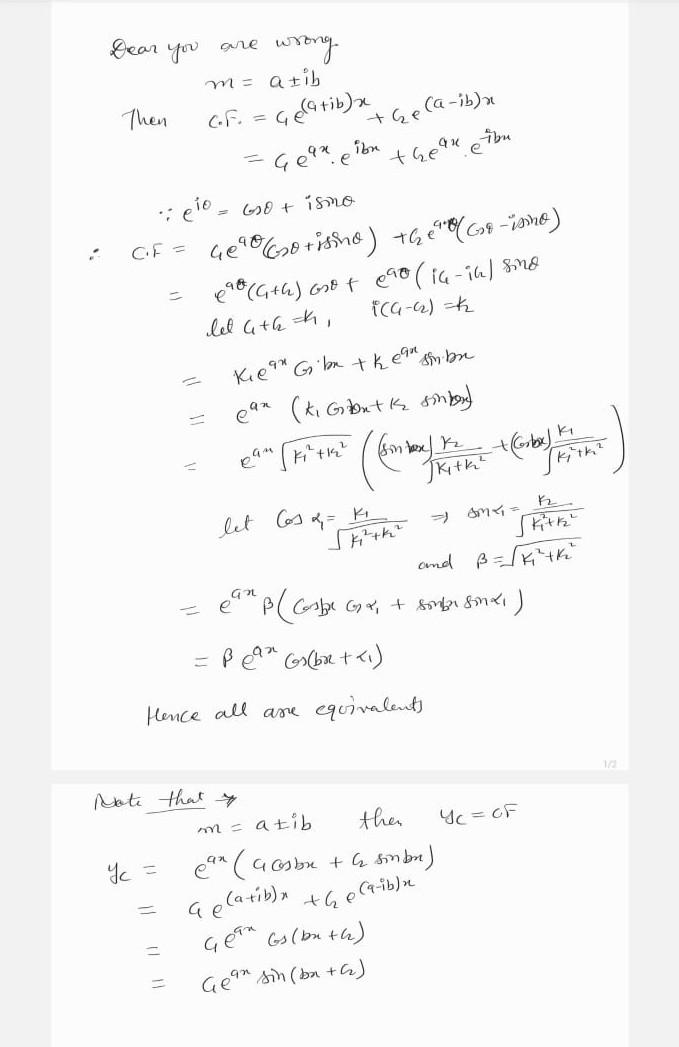 Dear you are wrong.
m = a ± ib
Then C.F. = C₁e^(a+ib)x + C₂e^(a-ib)x
= C₁e^ax . e^ibx + C₂e^ax . e^-ibx
∵ e^iθ = cosθ + isinθ
∴ C.F = C₁e^aθ(cosθ + isinθ) + C₂e^aθ(cosθ - isinθ)
= e^aθ(C₁+C₂) cosθ + e^aθ(iC₁ - iC₂) sinθ
let C₁+C₂ = K₁, i(C₁-C₂) = K₂
= K₁e^ax Cosbx + K₂e^ax sinbx
= e^ax (K₁ Cosbx + K₂ sinbx)
= e^ax √(K₁²+K₂²) ( (sinbx) K₂/√(K₁+K₂²) + (Cosbx) K₁/√(K₁²+K₂²) )
let Cos α₁ = K₁/√(K₁²+K₂²) ⇒ sinα₁ = K₂/√(K₁²+K₂²)
and β = √(K₁²+K₂²)
= e^ax β(Cosbx Cosα₁ + sinbx sinα₁)
= β e^ax Cos(bx + α₁)
Hence all are equivalents
1/2
Note that →
m = a ± ib then yc = CF
yc = e^ax (C₁ cosbx + C₂ sinbx)
= C₁e^(a+ib)x + C₂e^(a-ib)x
= C₁e^ax Cos(bx + C₂)
= C₁e^ax sin(bx + C₂)